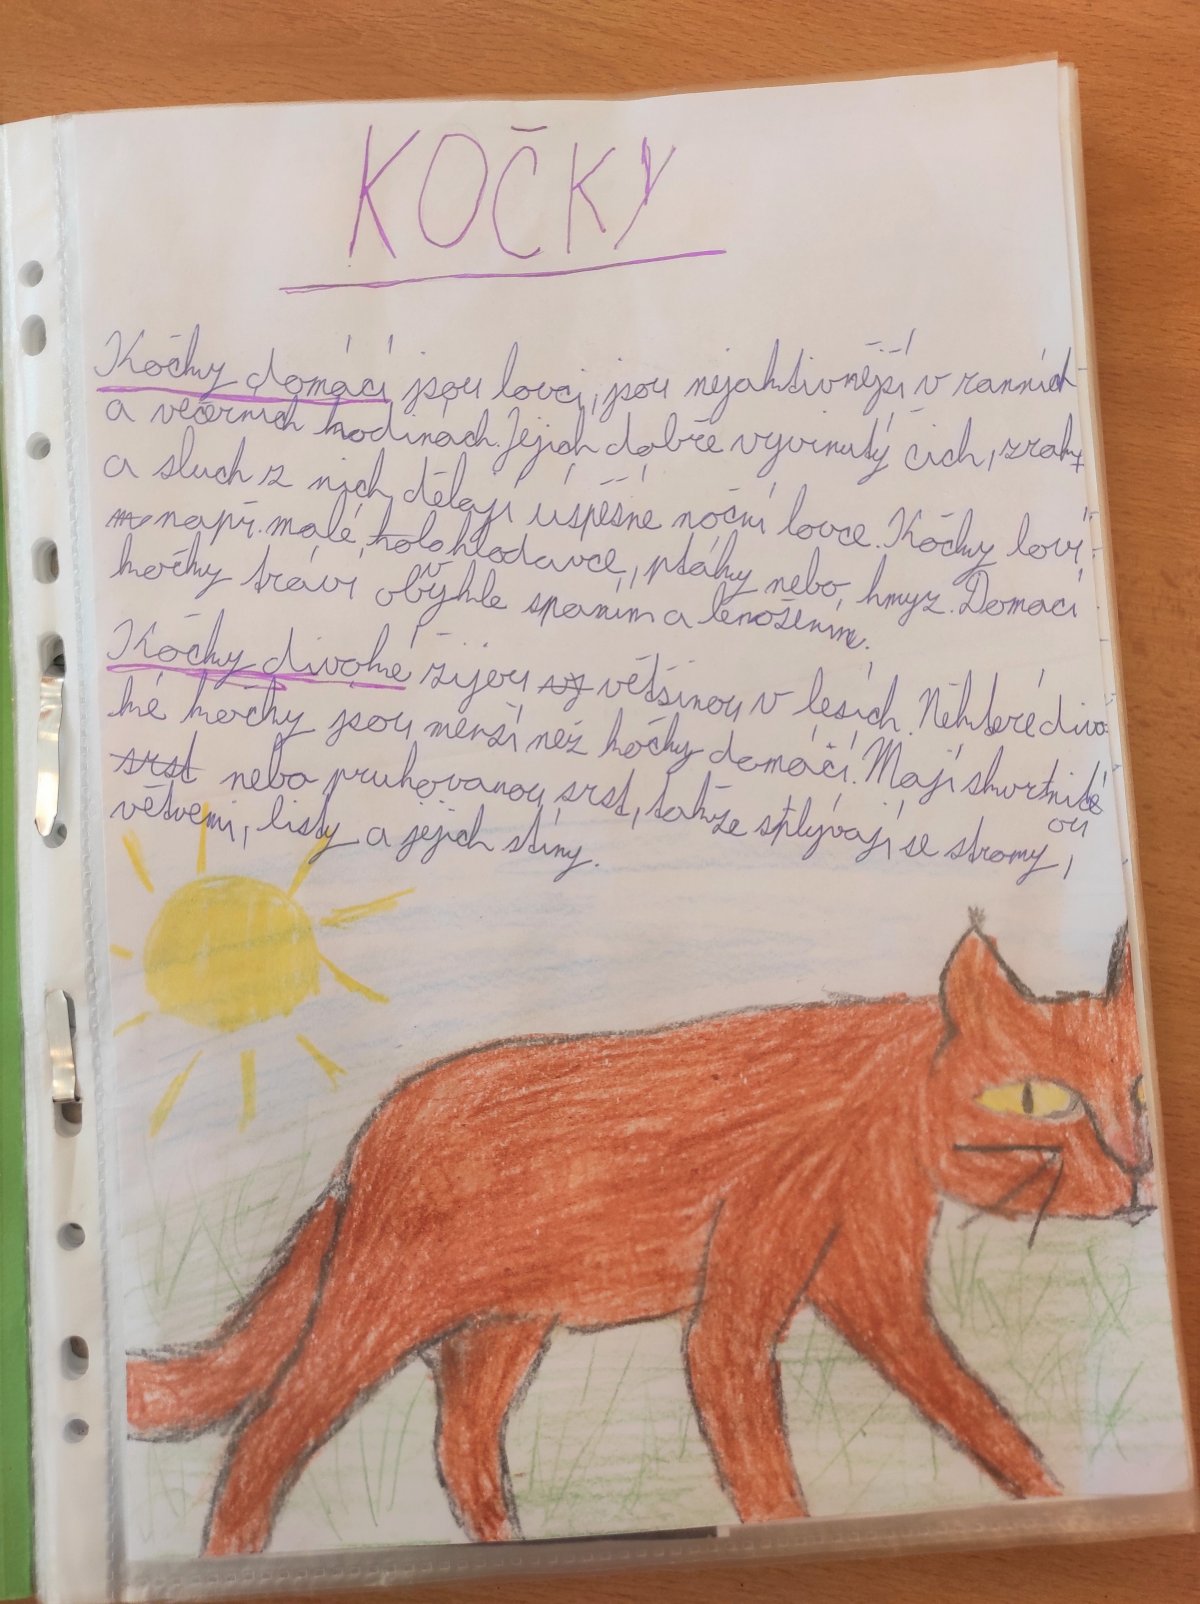 KOČKY
Kočky domácí jsou lovci, jsou nejaktivnější v ranních
a večerních hodinách. Jejich dobře vyvinutý čich, zrak
a sluch z nich dělají úspěšné noční lovce. Kočky loví
např. malé hlodavce, ptáky nebo hmyz. Domácí
kočky tráví obvykle spaním a lenošením.
Kočky divoké žijou většinou v lesích. Některé divo
ké kočky jsou menší než kočky domácí. Mají skvrnitě
ou
srst nebo pruhovanou srst, takže splývají se stromy,
větvemi, listy a jejich stíny.